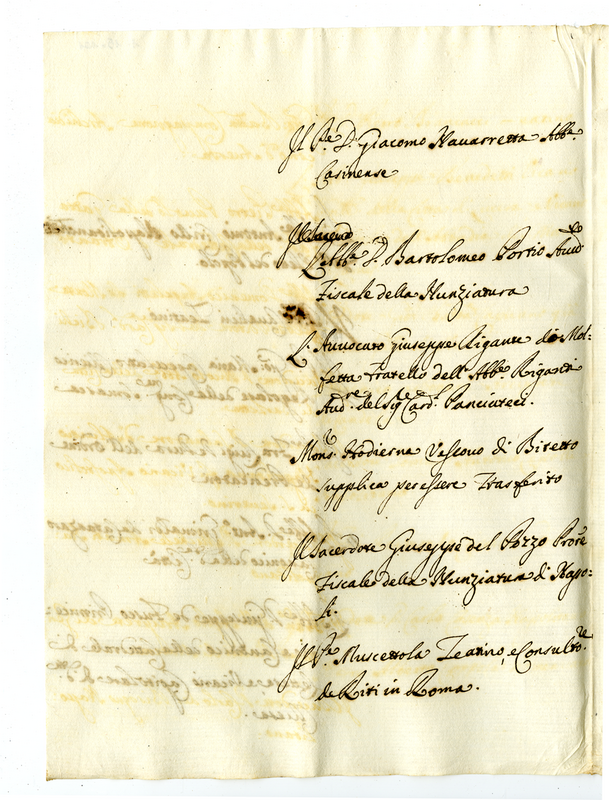 Il Pre. D. Giacomo Navarretta Abbe.
Casinense
Il Sacerd
L'Abbe. D. Bartolomeo Portio Avvdo
Fiscale della Nunziatura
L'Avvocato Giuseppe Rigante di Mol-
fetta fratello dell'Abbe. Riganti
Audre. del Sige. Card. Panciatici.
Monsr. Hodierna Vescovo di Biretto
supplica per essere Trasferito
Il Sacerdote Giuseppe del Pozzo Prore
Fiscale della Nunziatura di Napo-
li.
Il Pre. Muscettola Teatino, e Consultore.
de Riti in Roma.